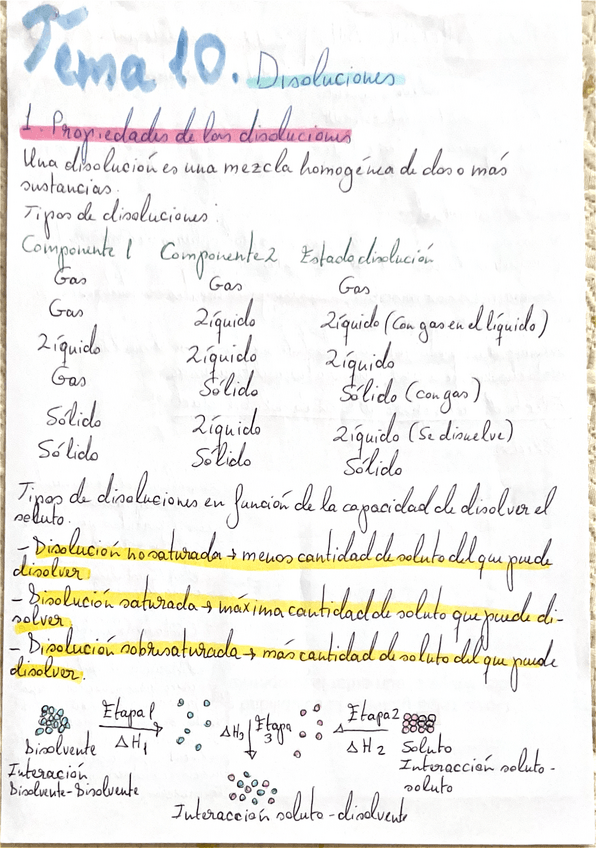 Tema 10. Disoluciones
1. Propiedades de las disoluciones
Una disolución es una mezcla homogénea de dos o más
sustancias.
Tipos de disoluciones:
Componente 1 Componente 2 Estado disolución
Gas Gas Gas
Gas Líquido Líquido (Con gas en el líquido)
Líquido Líquido Líquido
Gas Sólido Sólido (con gas)
Sólido Líquido Líquido (Se disuelve)
Sólido Sólido Sólido
Tipos de disoluciones en función de la capacidad de disolver el
soluto.
- Disolución no saturada → menos cantidad de soluto del que puede
disolver.
- Disolución saturada → máxima cantidad de soluto que puede di-
solver
- Disolución sobresaturada → más cantidad de soluto del que puede
disolver.
Etapa 1 ΔH₁ ΔH₃ Etapa 3 Etapa 2 ΔH₂
Disolvente Soluto
Interacción Disolvente-Disolvente Interacción soluto-soluto
Interacción soluto-disolvente